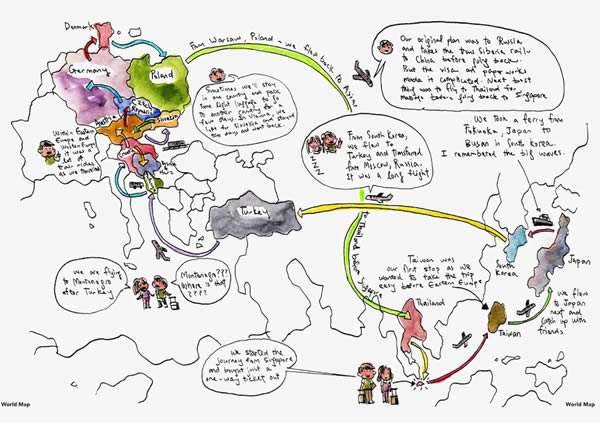 Denmark
Germany
Poland
Czech
Republic
Austria
Slovakia
From Warsaw, Poland - we flew back to Asia!
Sometimes we'll stay
in one country and pack
some light luggage to go
to another country for a
few days. In Vienna, we
left for Slovakia and stayed
two days and went back.
Within Eastern
Europe and
Western Europe
it was a
lot of
train rides
as we travelled
Our original plan was to Russia
and takes the trans Siberia railway
to China before flying back.
But the visa and paperworks
made it complicated. Next best
thing was to fly to Thailand for
before flying back to Singapore
From South Korea,
we flew to
Turkey and transferred
from Moscow, Russia.
It was a long flight
ZZZ
We took a ferry from
Fukuoka, Japan to
Busan in South Korea.
I remembered the big waves.
Turkey
to Thailand before Singapore
Taiwan was
our first stop as we
wanted to take the trip
easy before Eastern Europe
South
Korea
Japan
we flew
to Japan
next and
catch up with
friends
Thailand
Taiwan
we are flying
to Montenegro
after Turkey
Montenegro???
Where is that?
????
We started the
journey from Singapore
and bought just a
one-way ticket out
World Map
World Map